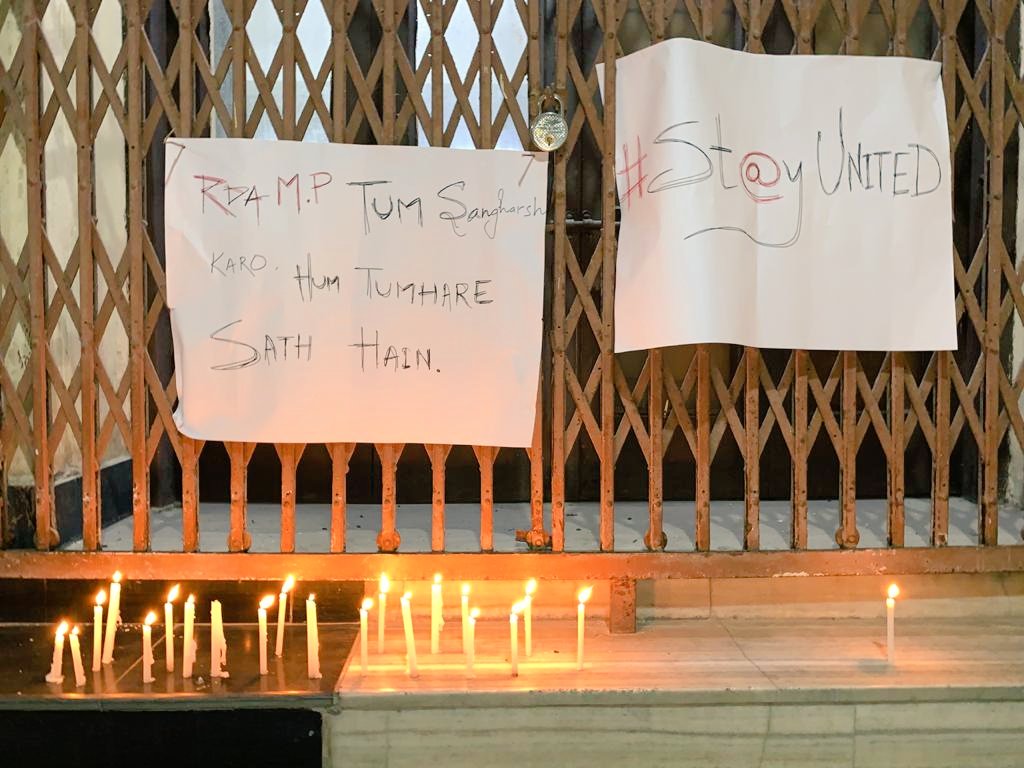 RDA M.P TUM Sangharsh
KARO. HUM TUMHARE
SATH HAIN.
#St@y UNITED